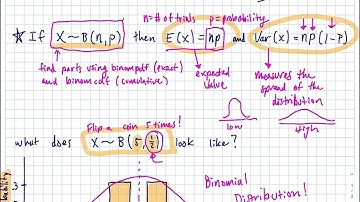 n=# of trials p=probability
☆ If X~B(n,p) then E(x)=np and Var(x)=np(1-p)
find parts using binompdf (exact)
and binomcdf (cumulative)
expected
value
measures the
spread of the
distribution
low
high
Flip a coin 5 times!
what does X~B(5,1/2) look like?
Binomial
Distribution!
3